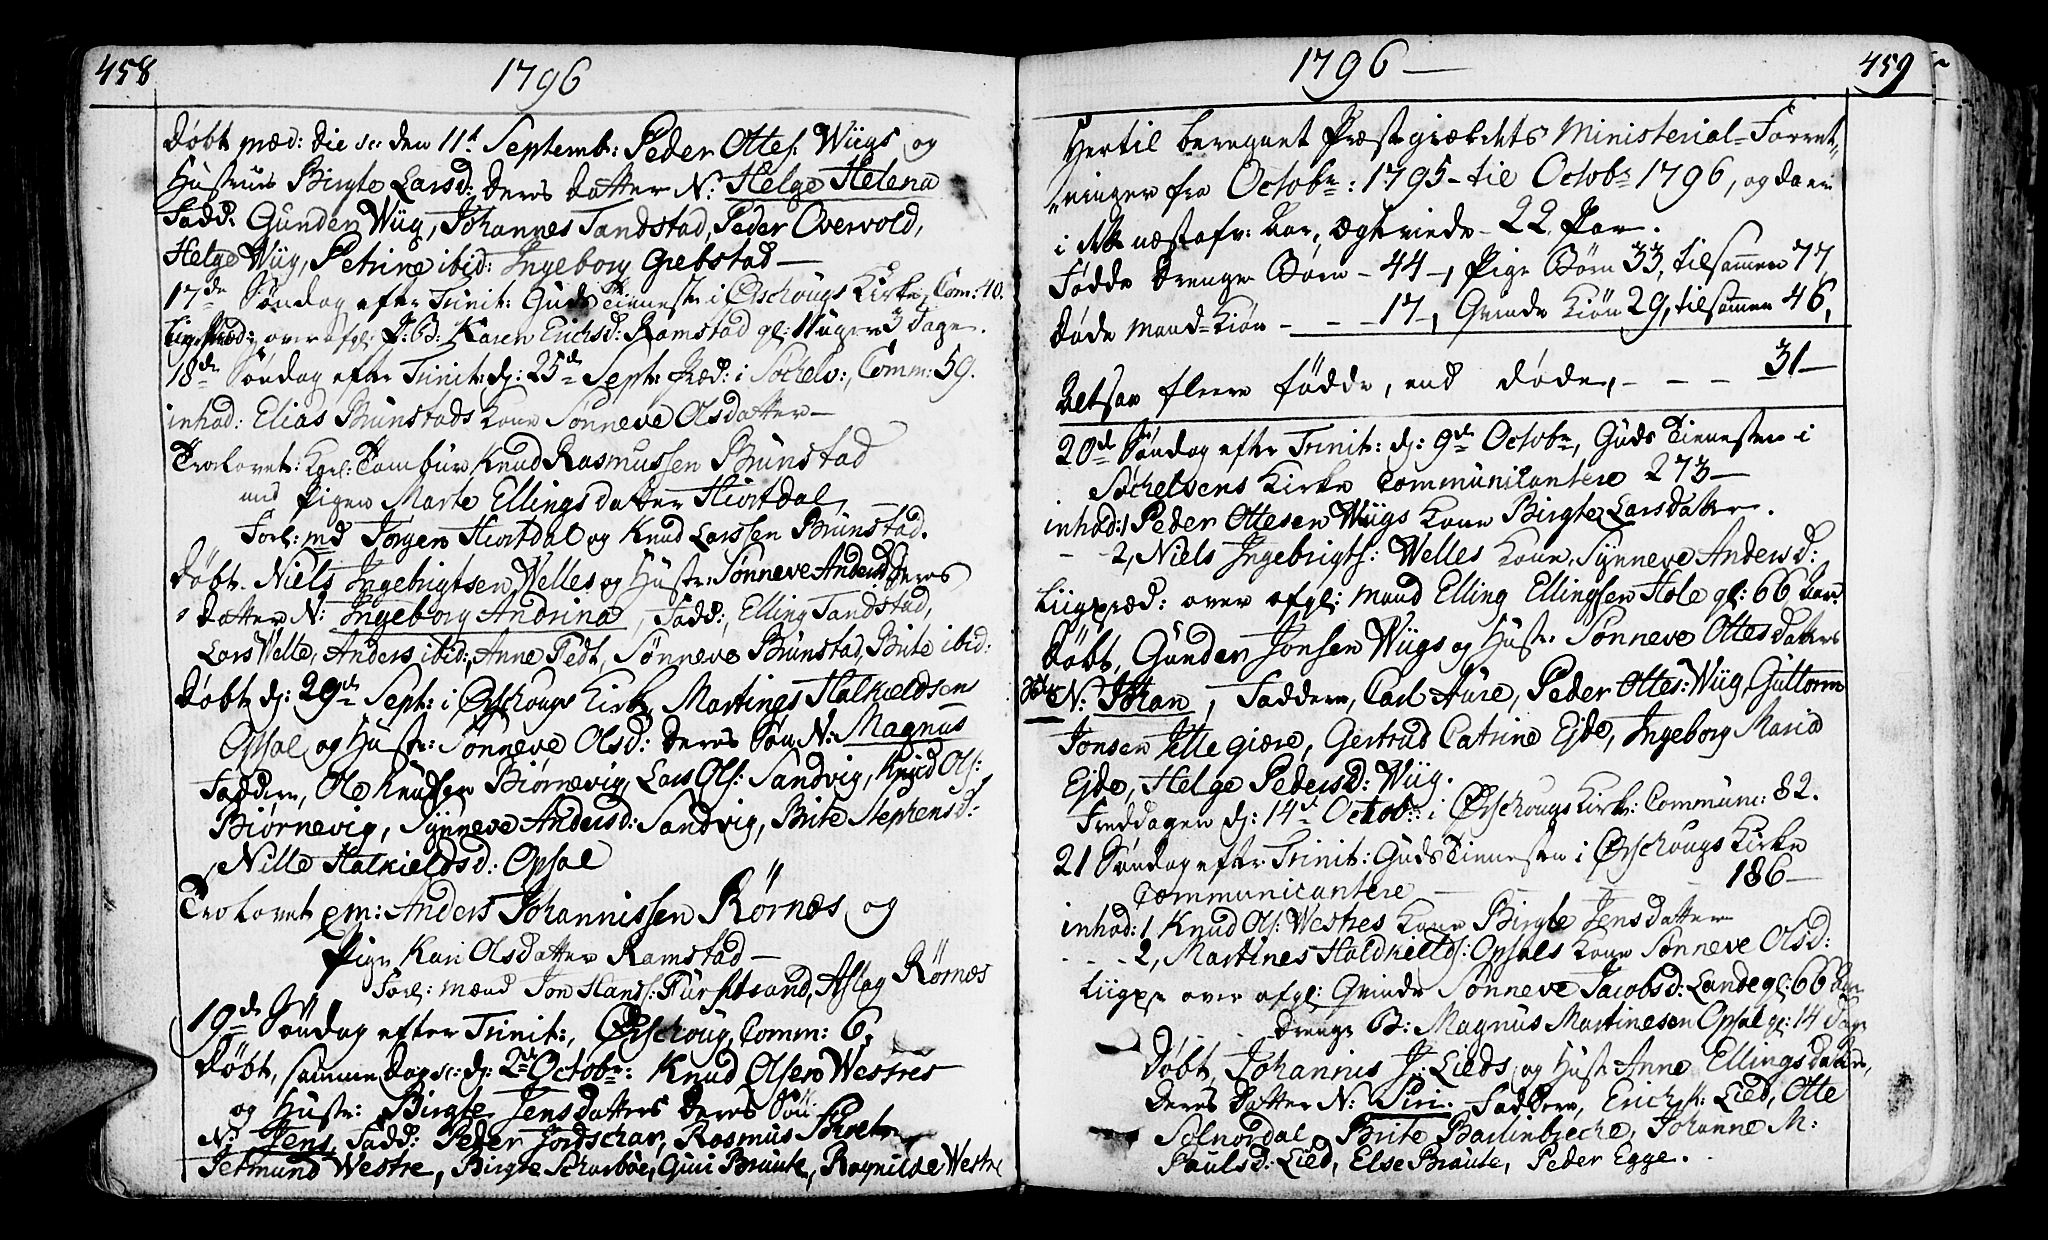 458
1796
Døbt mæd: die sc: den 11t Septemb: Peder Ottes: Wiigs og
Hustrues Birgte Larsd: deres datter N: Helge Helena
Fadd: Gunder Wiig, Johannes Tandstad, Peder Overvold,
Helge Wiig, Petrine ibid: Ingeborg Grebstad—
17de Søndag efter Trinit: Guds Tienest i Ørschougs Kirke, Com: 40.
Ligpræd: over afgl: P: B: Karen Erichsd: Ramstad gl: 11 uger 3 dage.
18de Søndag efter Trinit: dj: 25de Sept: Præd: i Søchelv:, Comm: 59.
inhad: Elias Brunstads Kone Sønneve Olsdatter—
Trolovet: Kgl: Tambur Knud Rasmussen Brunstad
med Pigen Marte Ellingsdatter Hiortdal,
Forl: md Jørgen Hiortdal og Knud Larssen Brunstad.
Døbt. Niels Ingebrigtsen Welles og Hustr: Sønneve Andersd: deres
datter N: Ingeborg Andrina, Fadd:, Elling Tandstad,
Lars Welle, Anders ibid:, Anne Fedt, Sønneve Brunstad, Brite ibid:
Døbt dj: 29de Sept: i Ørschougs Kirke, Martinus Halkieldsen
Opsal og Hustr: Sønneve Olsd: deres Søn N: Magnus
Faddere, Ole Knudsen Biørnevig, Lars Ols: Sandvig, Knud Ols:
Biørnevig, Synneve Andersd: Sandvig, Brite Stephensd:
Nille Halkieldsd: Opsal
Trolovet em: Anders Johannissen Rørnæs og
Pige Kari Olsdatter Ramstad—
Forl: mænd Jon Hans: Furstrand, Aslag Rørnæs
19de Søndag efter Trinit:, Ørschoug, Comm: 6,
Døbt, samme Dag sc: dj: 2de Octobr: Knud Olsen Westres
og Hustr: Birgte Jensdatters deres Søn
N: Jens, Fadd: Peder Jordschar, Rasmus
Jetmund Westre, Birgte Scharbøe, Guri Braute, Ragnilde Westre
1796—
459
Hertil beregnet Præstegiældets Ministerial-Forret-
ninger fra Octobr: 1795 - til Octobr 1796, og da er
i dette næstafv: Aar, Ægteviede - 22 Par.
Fødde Drenge Børn - 44 -, Pige Børn 33, tilsammen 77
Døde Mand-Kiøn - - - 17 -, Qvinde Kiøn 29, tilsammen 46,
Altsaa fleere fødde, end døde, - - - 31—
20de Søndag efter Trinit: dj: 9de Octobr, Guds Tienesten i
Søchelvens Kirke Communicantere 273—
inhad: 1, Peder Ottesen Wiigs Kone Birgte Larsdatter.
- - 2, Niels Ingebrigts: Welles Kone Synneve Andersd:
Liigpræd: over afgl: Mand Elling Ellingsen Hole gl: 66 Aar.
Døbt, Gunder Jonsen Wiigs og Hustr: Sønneve Ottesdatters
N: Johan, Faddere, Carl Aure, Peder Ottes: Wiig, Guttorm
Jonsen Jellegiære, Gertrud Catrine Ejde, Ingeborg Maria
Ejde, Helge Pedersd: Wiig.
Freddagen dj: 14t Octobr: i Ørschougs Kirk: Commun: 82.
21 Søndag efter Trinit: Guds Tiennesten i Ørschougs Kirke
Communicantere — 186—
inhad: 1 Knud Ols: Westres Kone Birgte Jensdatter
- - - 2, Martines Haldkields: Opsals Kone Sønneve Olsd:
Liigpr over afgl: Qvinde Sønneve Jacobsd: Lande gl: 66 Aar
Drenge B: Magnus Martinesen Opsal gl: 14 Dage
Døbt, Johannis J: Lieds og Hustr Anne Ellingsdatters,
Deres Datter N: Siri. Faddere, Erich K: Lied, Otte
Solnordal, Brite Bachenbreche, Johanne M:
Paulsd: Lied, Else Braute, Peder Egge.